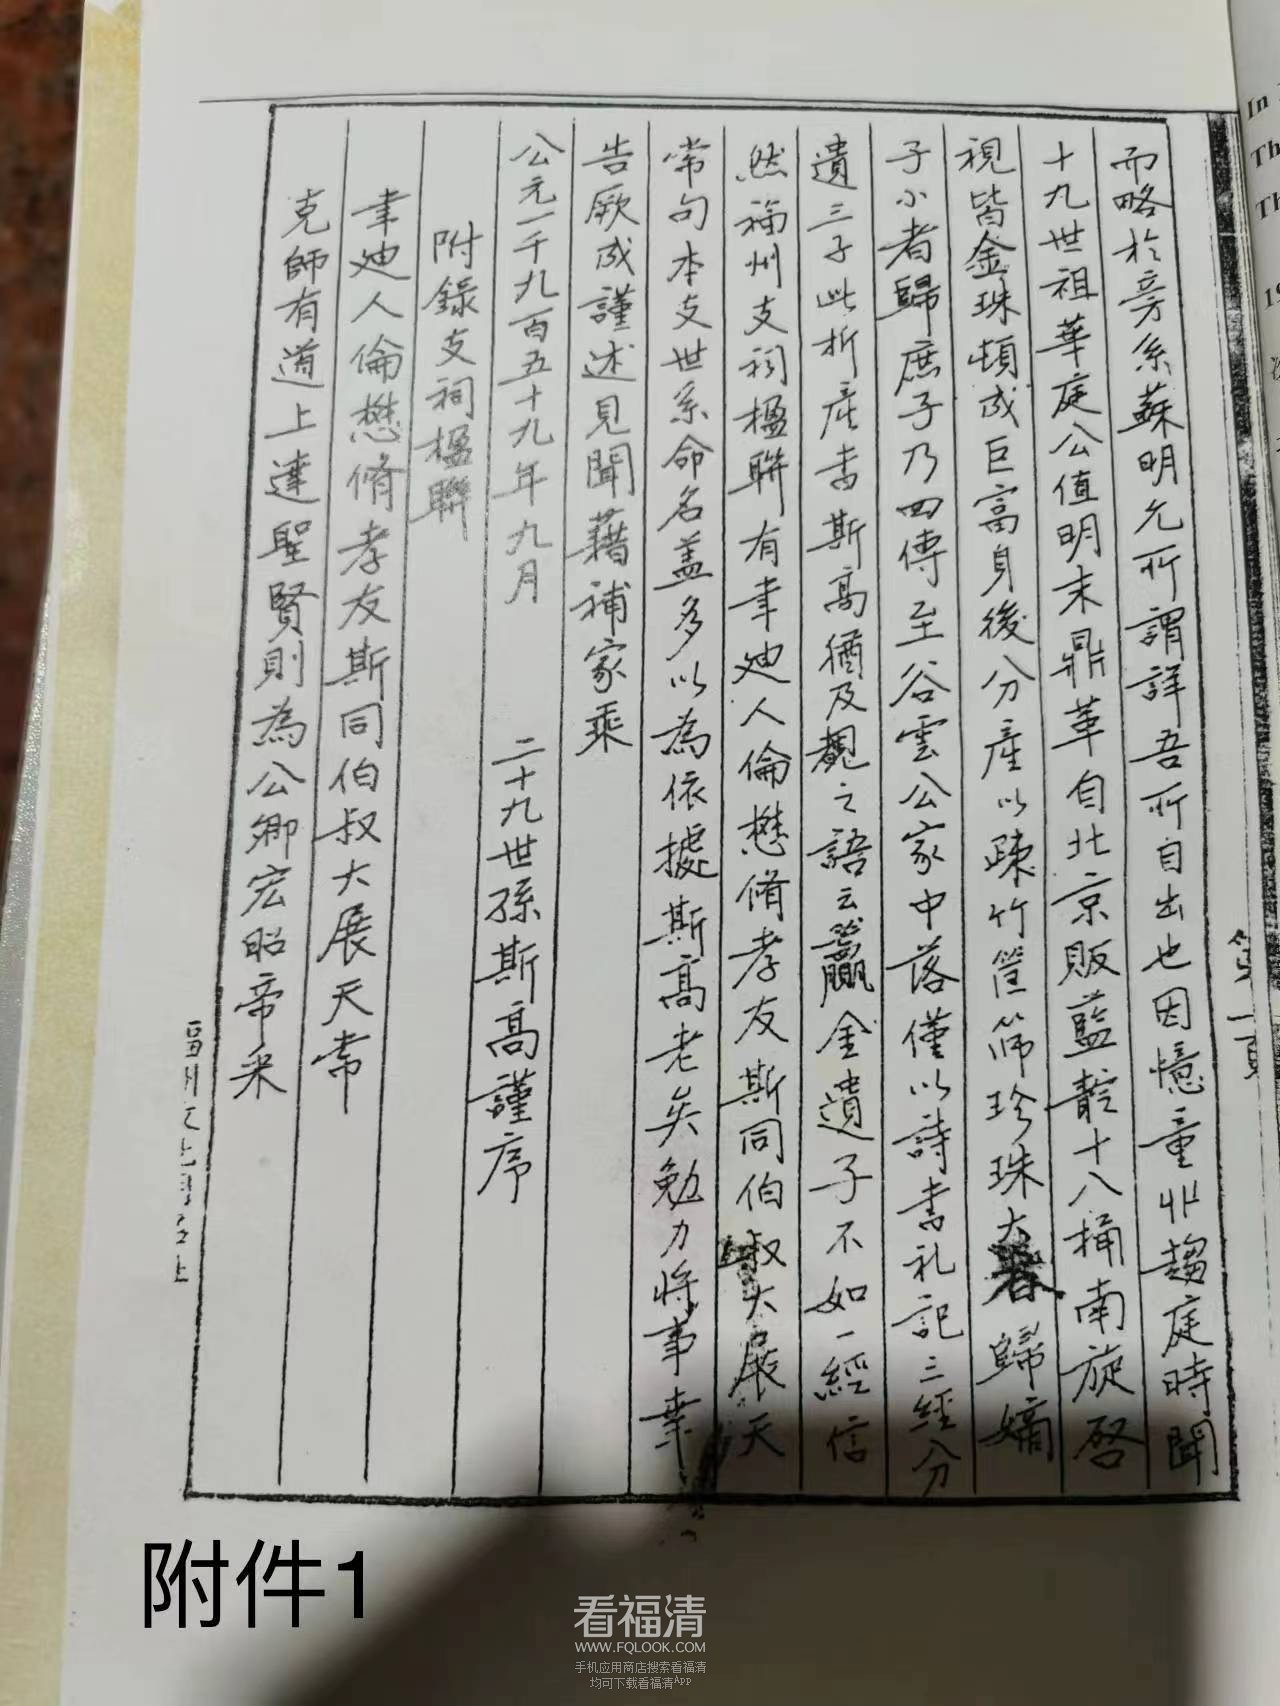 而略於旁系蘇明允所謂詳吾所自出也因憶童丱趨庭時聞
十九世祖華庭公值明末鼎革自北京販藍靛十八桶南旋啓
視皆金珠頓成巨富身後分產以疎竹筐篩珍珠大者歸嫡
子小者歸庶子乃四傳至谷雲公家中落僅以詩書礼記三經分
遺三子此析產書斯高猶及觀之語云籯金遺子不如一經信
然福州支祠楹聯有聿廸人倫懋脩孝友斯同伯叔大展天
常句本支世系命名盖多以為依據斯高老矣勉力将事幸
告厥成謹述見聞藉補家乘
公元一千九百五十九年九月 二十九世孫斯高謹序
附錄支祠楹聯
聿廸人倫懋脩孝友斯同伯叔大展天常
克師有道上達聖賢則為公卿宏昭帝采
In
Th
Th
19
附件1
看福清
WWW.FQLOOK.COM
手机应用商店搜索看福清
均可下载看福清App